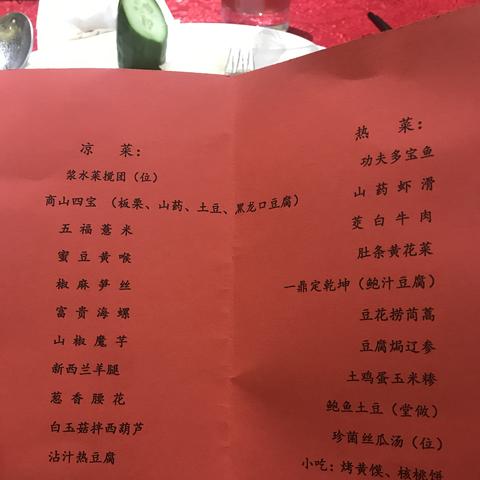 凉 菜：
浆水菜搅团（位）
商山四宝 （板栗、山药、土豆、黑龙口豆腐）
五福薏米
蜜豆黄喉
椒麻笋丝
富贵海螺
山椒魔芋
新西兰羊腿
葱香腰花
白玉菇拌西葫芦
沾汁热豆腐
热 菜：
功夫多宝鱼
山药虾滑
茭白牛肉
肚条黄花菜
一鼎定乾坤（鲍汁豆腐）
豆花捞茼蒿
豆腐焗辽参
土鸡蛋玉米糁
鲍鱼土豆（堂做）
珍菌丝瓜汤（位）
小吃：烤黄馍、核桃饼